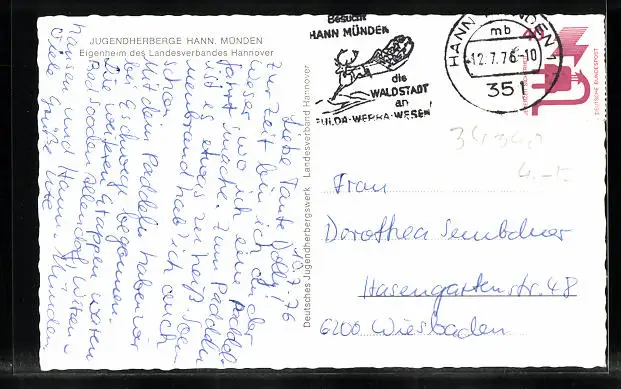 JUGENDHERBERGE HANN. MÜNDEN
Eigenheim des Landesverbandes Hannover
10.7.76
Liebe Tante Dolly!
Zur Zeit bin ich an der
Weser, wo ich eine Paddel-
fahrt mache. Zum Paddeln
ist es etwas zu heiß. Son-
nenbrand hab' ich auch
schon.
Mit dem Paddeln haben wir
bei Eschwege begonnen.
Die weiteren Etappen waren
Bad Sooden Allendorf, Witzen-
hausen und Hann. Münden.
Viele Grüße Ute
Deutsches Jugendherbergswerk Landesverband Hannover
Besucht
HANN MÜNDEN
die
WALDSTADT
an
FULDA-WERRA-WESER
HANN MÜNDEN 1
mb
12.7.76-10
351
40
DEUTSCHE BUNDESPOST
Frau
Dorothea Sembdner
Hasengartenstr. 48
6200 Wiesbaden